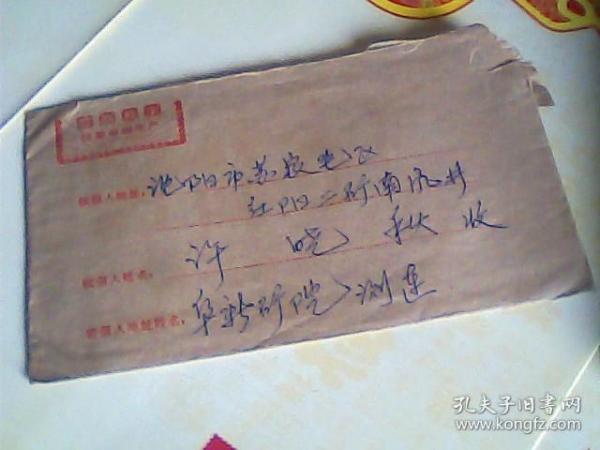 收信人地址：沈阳市苏家屯区
红阳二矿南风井
收信人姓名：许晓秋收
寄信人地址姓名：阜新矿院测连
孔夫子旧书网
www.kongfz.com